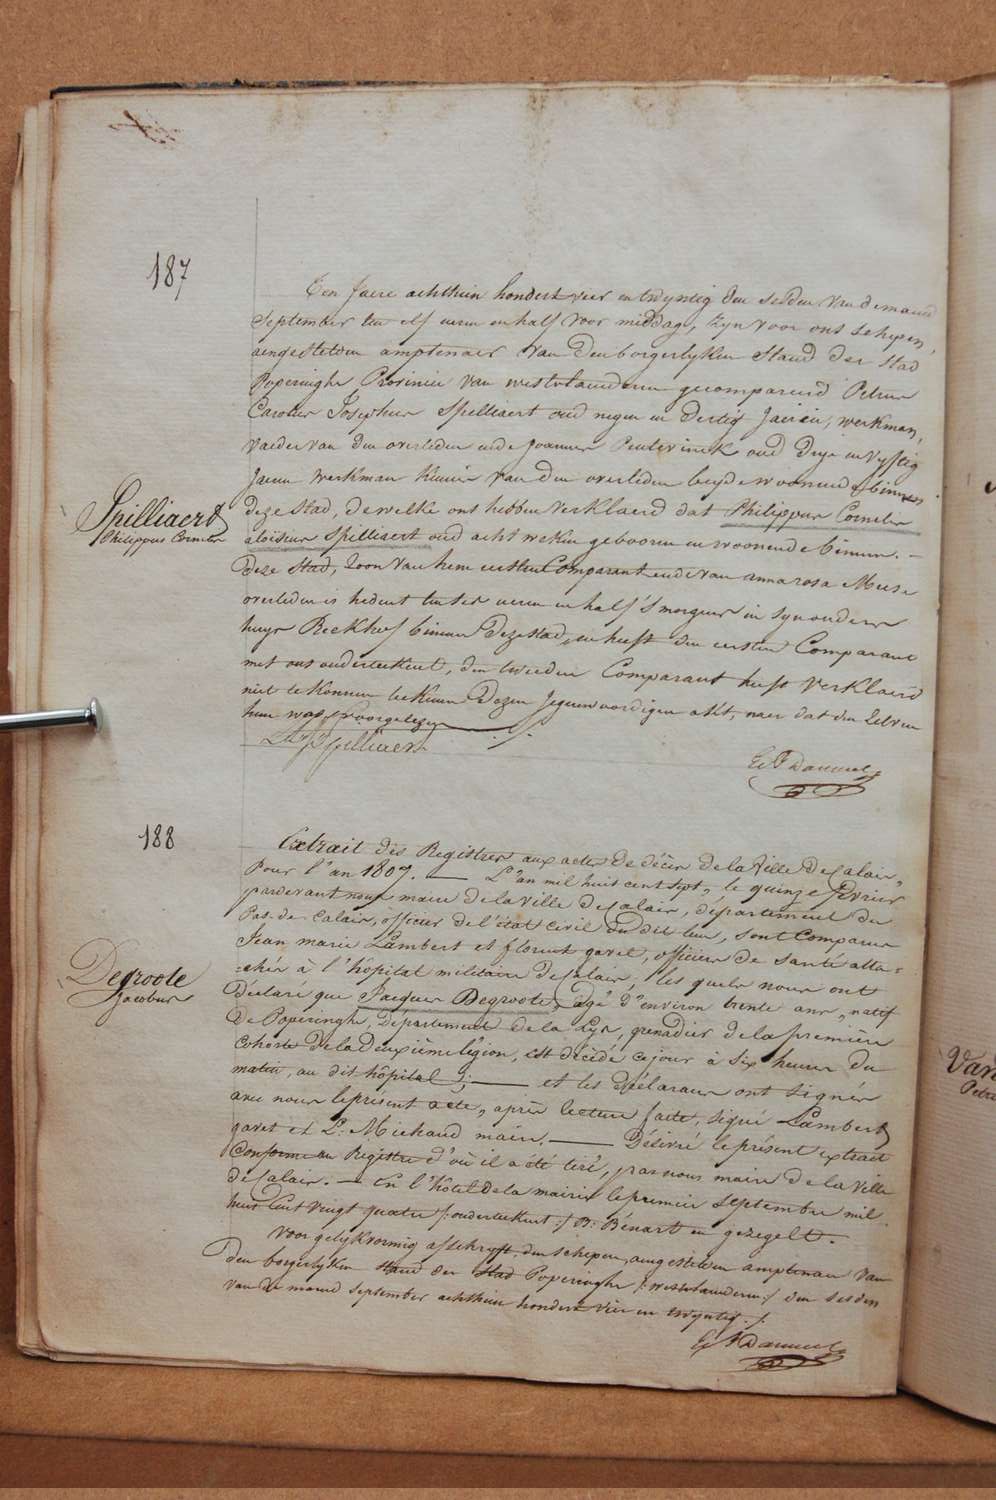 187
Ten Jaere achthien hondert vier en twyntig den sesden van de maend
September ten elf uren en half voor middag, zyn voor ons schepen,
aengestelden amptenaer van den borgerlyken staend der stad
Poperinghe Provincie van westvlaenderen gecompareerd Petrus
Carolus Josephus Spilliaert oud negen en dertig Jaeren, werkman,
vaeder van den overleden ende Joannes Peulevinck oud dryen vyftig
Jaeren werkman kennis van den overleden beyde woonende binnen
deze stad, de welke ons hebben verklaerd dat Philippus Cornelis
Spilliaert
Philippus Cornelis
aloïsius Spilliaert oud acht weken gebooren en woonende binnen. —
deze stad, zoon van hem eersten Comparant ende van anna rosa Meese
overleden is hedent ten ses uren en half 's morgens in syn ouders
huys Reekhof binnen deze stad, en heeft den eersten Comparant
met ons onderteekent, den tweeden Comparant heeft verklaerd
niet te konnen teekenen dezen Jegenwoordigen akt, naer dat den zelven
hun was voorgelezen ./.
Spilliaert
188
Extrait des Registres aux actes de décès de la Ville de Calais,
Pour l'an 1807. — L'an mil huit cent sept, le quinze fevrier
pardevant nous maire de la ville de Calais, département du
Pas-de-Calais, officier de l'état civil du dit lieu, sont Comparus
Jean marie Lambert et florent gavet, officiers de santé atta=
Degroote
Jacobus
=chés à l'hôpital militaire de Calais, les quels nous ont
déclaré que Jacques Degroote, agé d'environ trente ans, natif
de Poperinghe, Département de la Lys, grenadier de la première
Cohorte de la deuxième légion, est décédé ce jour à six heures du
matin, au dit hôpital; — et les Déclarans ont signés
avec nous le présent acte, après lecture faite, signé Lambert
gavet et L. Michaud maire. — Délivré le présent extrait
Conforme au Registre d'où il a été tiré, par nous maire de la ville
de Calais. — En l'hôtel de la mairie le premier septembre mil
huit Cent vingt quatre /: onderteekent :/ B. Bénart en gezegelt. —
Voor gelykvormig afschryft, den schepen, aengestelden amptenaer van
den borgerlyken staend der stad Poperinghe /: westvlaenderen :/ den sesden
van de maend september achthien hondert vier en twyntig ./.